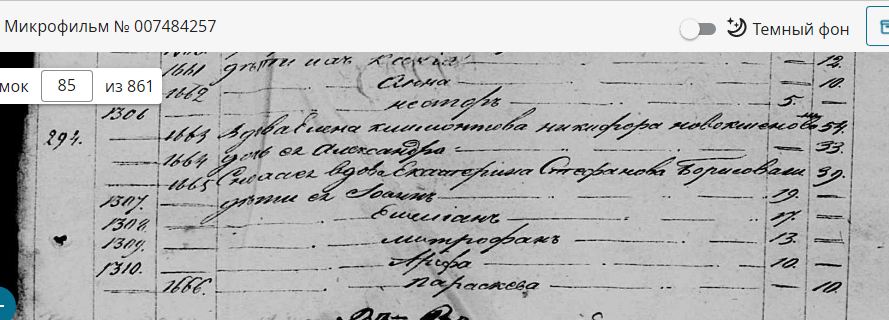 Микрофильм № 007484257
Темный фон
мок 85 из 861
1661 дѣти ихъ 12.
1662 Анна 10.
1306 несторъ 5.
294. 1663 Вдова Елена климонтова никифора 54.
1664 дочь ея Александра 33.
1665 Сноха ея вдова Екатерина Стефанова 39.
1307. дѣти ея Іоаннъ 19.
1308. Емеліанъ 17.
1309. митрофанъ 13.
1310. 10.
1666. параскева 10.